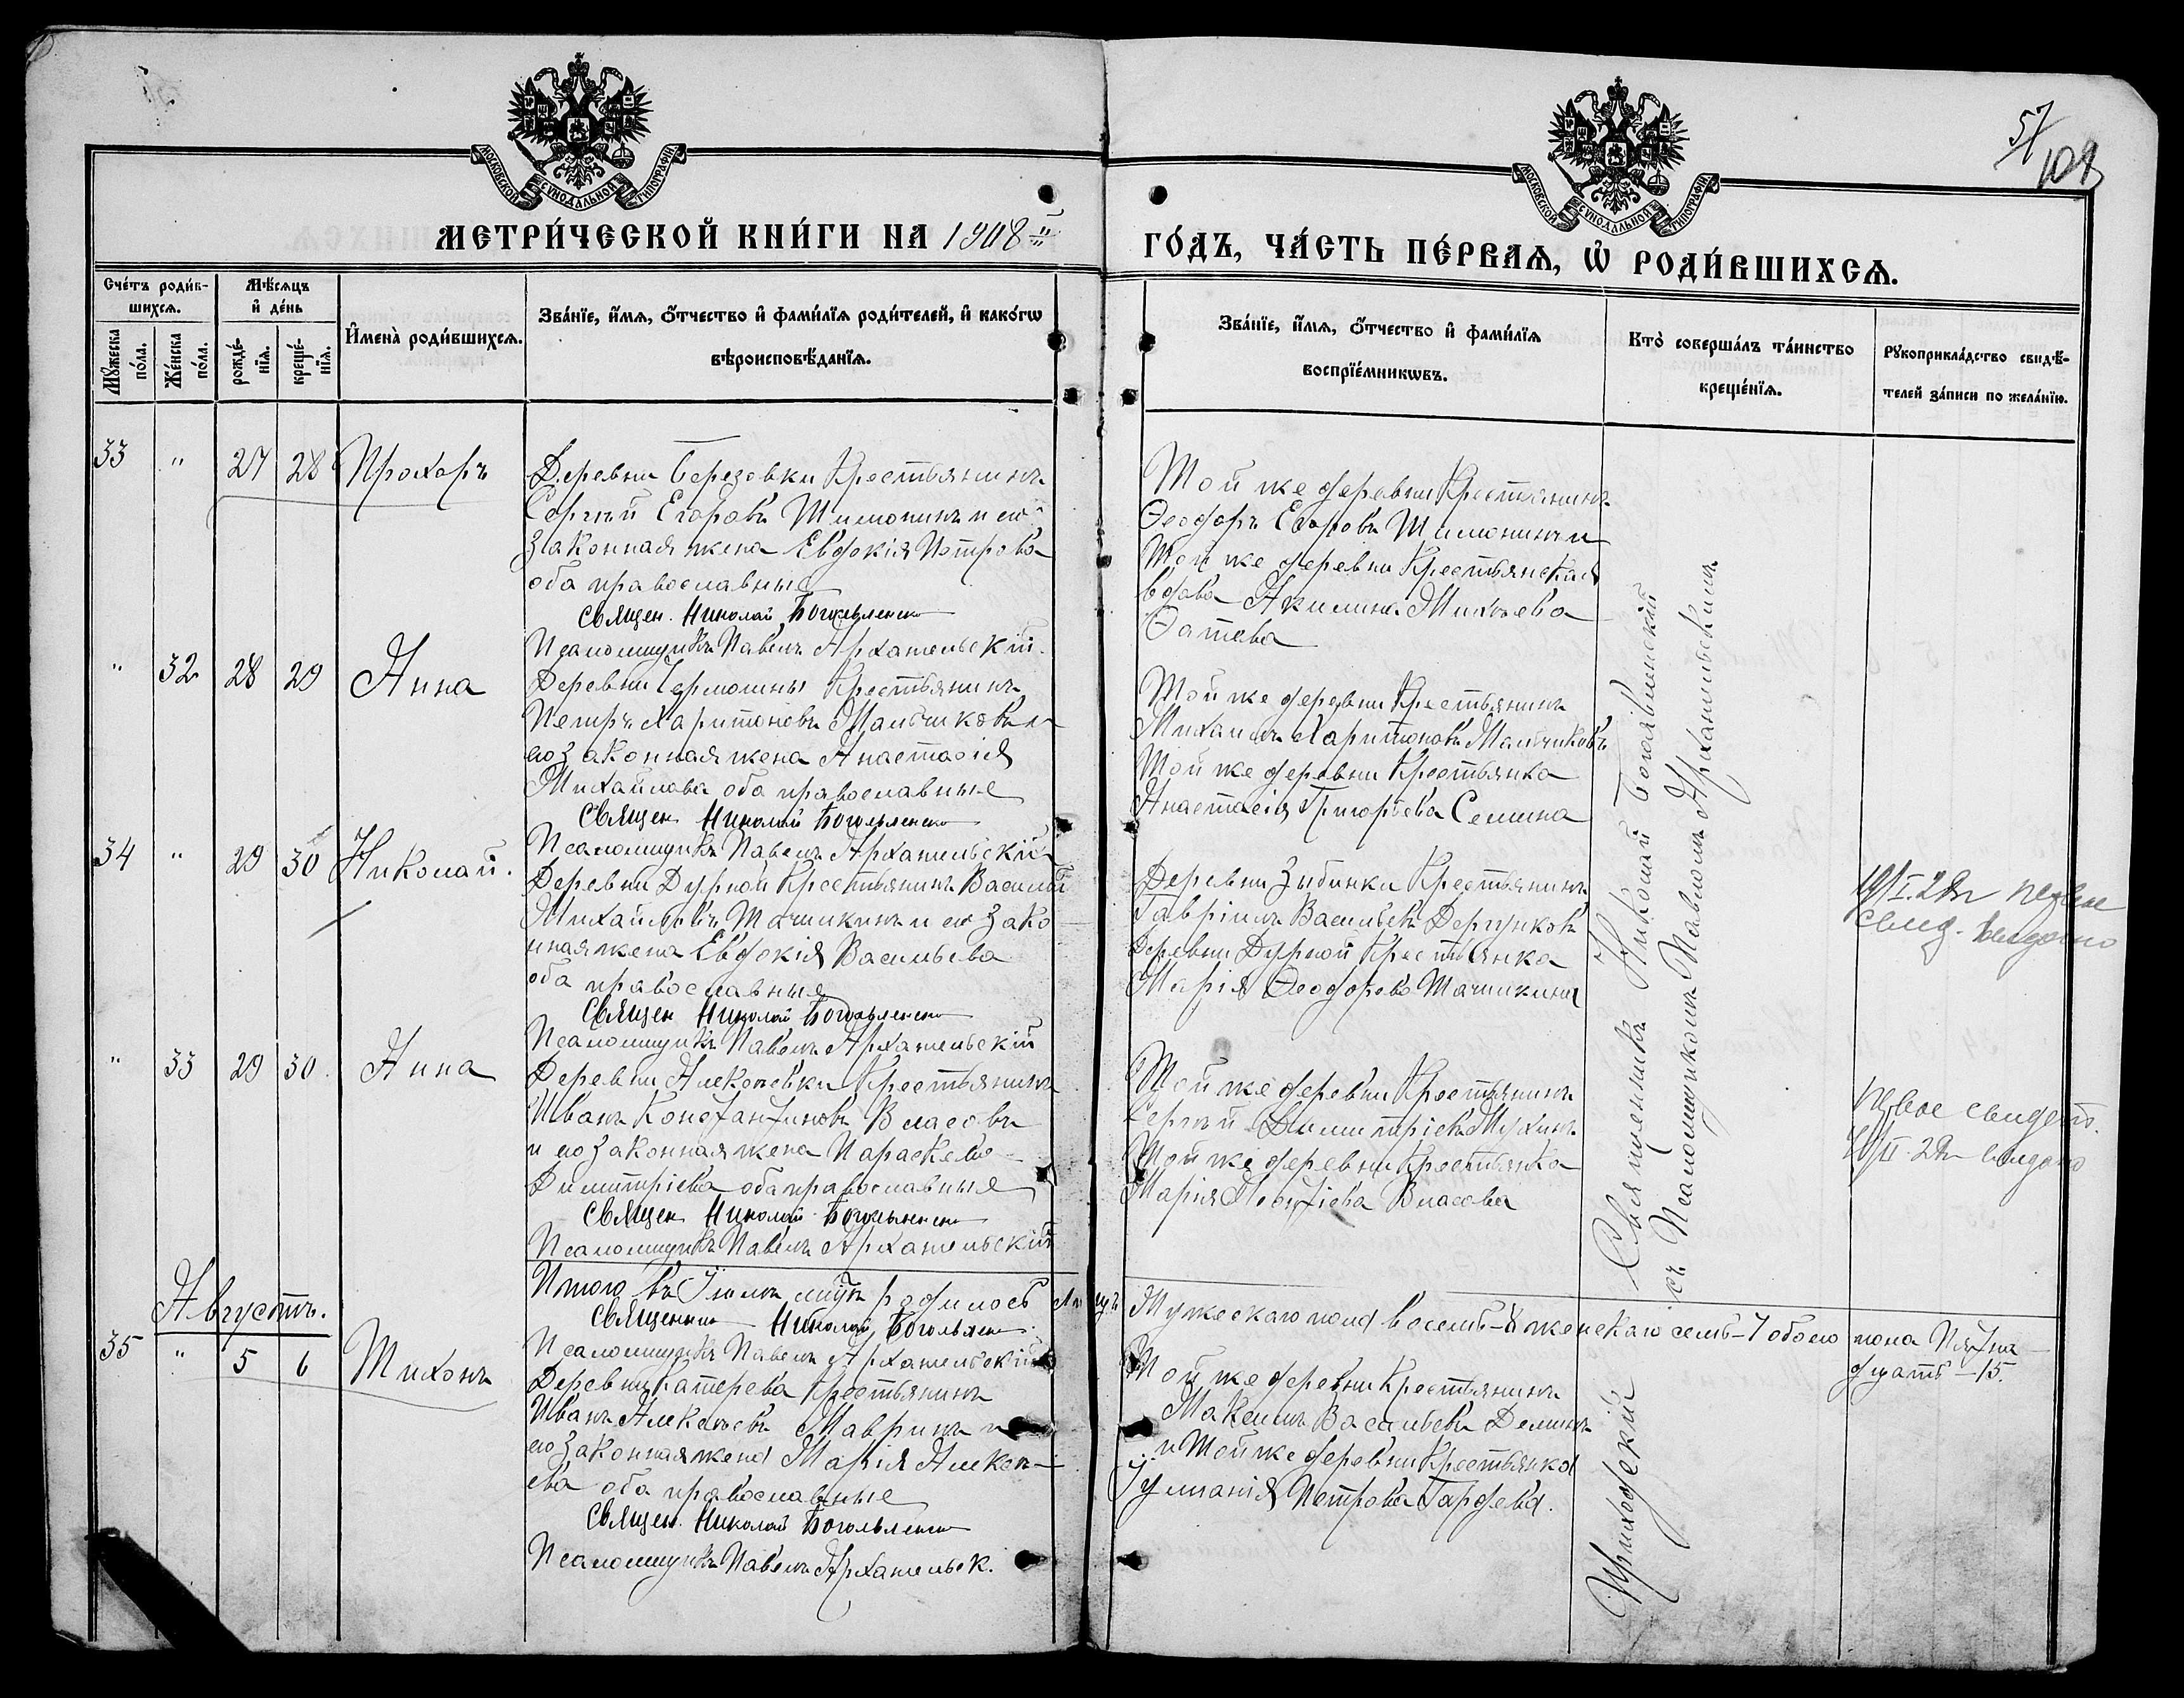 57
109
МОСКОВСКОЙ СѴНОДАЛЬНОЙ ТИПОГРАФІИ
МОСКОВСКОЙ СѴНОДАЛЬНОЙ ТИПОГРАФІИ
МЕТРИ́ЧЕСКОЙ КНИ́ГИ НА 1908 й
ГО́ДЪ, ЧА́СТЬ ПЕ́РВАѦ, Ѡ҆ РОДИ́ВШИХСѦ.
Сче́тъ роди́в-
шихсѧ.
Мꙋ́жеска по́ла.
Же́нска по́ла.
Мѣ́сѧцъ
и҆ де́нь
рожде́-
нїѧ.
креще́-
нїѧ.
И҆мена̀ роди́вшихсѧ.
Зва́нїе, и҆́мѧ, ѻ҆́тчество и҆ фамі́лїѧ роди́телей, и҆ како́гѡ
вѣроисповѣ́данїѧ.
Зва́нїе, и҆́мѧ, ѻ҆́тчество и҆ фамі́лїѧ
воспрїе́мникѡвъ.
Кто̀ соверша́лъ та́инство
креще́нїѧ.
Рꙋкоприкла́дство свидѣ́-
телей за́писи по жела́нїю.
33 " 27 28 Прохоръ
Деревни Березовки Крестьянинъ
Сергѣй Егоровъ Тимонинъ и его
законная жена Евдокія Петрова
оба православные
Священ. Николай Богоявленск
Псаломщикъ Павелъ Архангельскій.
Той же деревни Крестьянинъ
Ѳеодоръ Егоровъ Тимонинъ и
Той же деревни Крестьянская
вдова Акилина Михѣева
" 32 28 29 Анна
Деревни Крестьянинъ
Петръ Харитоновъ Мальчиковъ и
его законная жена Анастасія
Михайлова оба православные
Священ Николай Богоявленск
Псаломщикъ Павелъ Архангельскій
Той же деревни Крестьянинъ
Михаилъ Харитоновъ Мальчиковъ
Той же деревни Крестьянка
Анастасія Григорьева Семина
34 " 29 30 Николай.
Деревни Дурной Крестьянинъ Василій
Михайловъ и его зако
нная жена Евдокія Васильева
оба православные
Священ Николай Богоявленск
Псаломщикъ Павелъ Архангельскій
Деревни Зыбинки Крестьянинъ
Гавріилъ Васильевъ
Деревни Дурной Крестьянка
Марія Ѳеодорова
19/I.29г первое
свид. выдано
" 33 29 30. Анна
Деревни Алексѣевки Крестьянинъ
Иванъ Константиновъ Власовъ
и его законная жена Параскева
Димитріева оба православные
Священ Николай Богоявленск
Псаломщикъ Павелъ Архангельскій
Той же деревни Крестьянинъ
Сергѣй Димитріевъ Мухинъ
Той же деревни Крестьянка
Марія Власова
первое свидет.
выдано
Итого въ Іюлѣ мѣсяцѣ родилось
Мужескаго пола восемь-8 женскаго семь-7 обоего пола Пятна
дцать-15.
Священник Николай Богоявлен
Псаломщикъ Павелъ Архангельскій
Августъ.
35 " 5 6 Тихонъ
Деревни Крестьянинъ
Иванъ Алексѣевъ Мавринъ и
его законная жена Марія Алексѣ-
ева оба православные
Священ. Николай Богоявленск
Псаломщикъ Павелъ Архангельск.
Той же деревни Крестьянинъ
Максимъ Васильевъ Деминъ
и Той же деревни Крестьянка
Іуліанія Петрова
Приходскій
Священникъ Николай Богоявленскій
съ Псаломщикомъ Павломъ Архангельскимъ